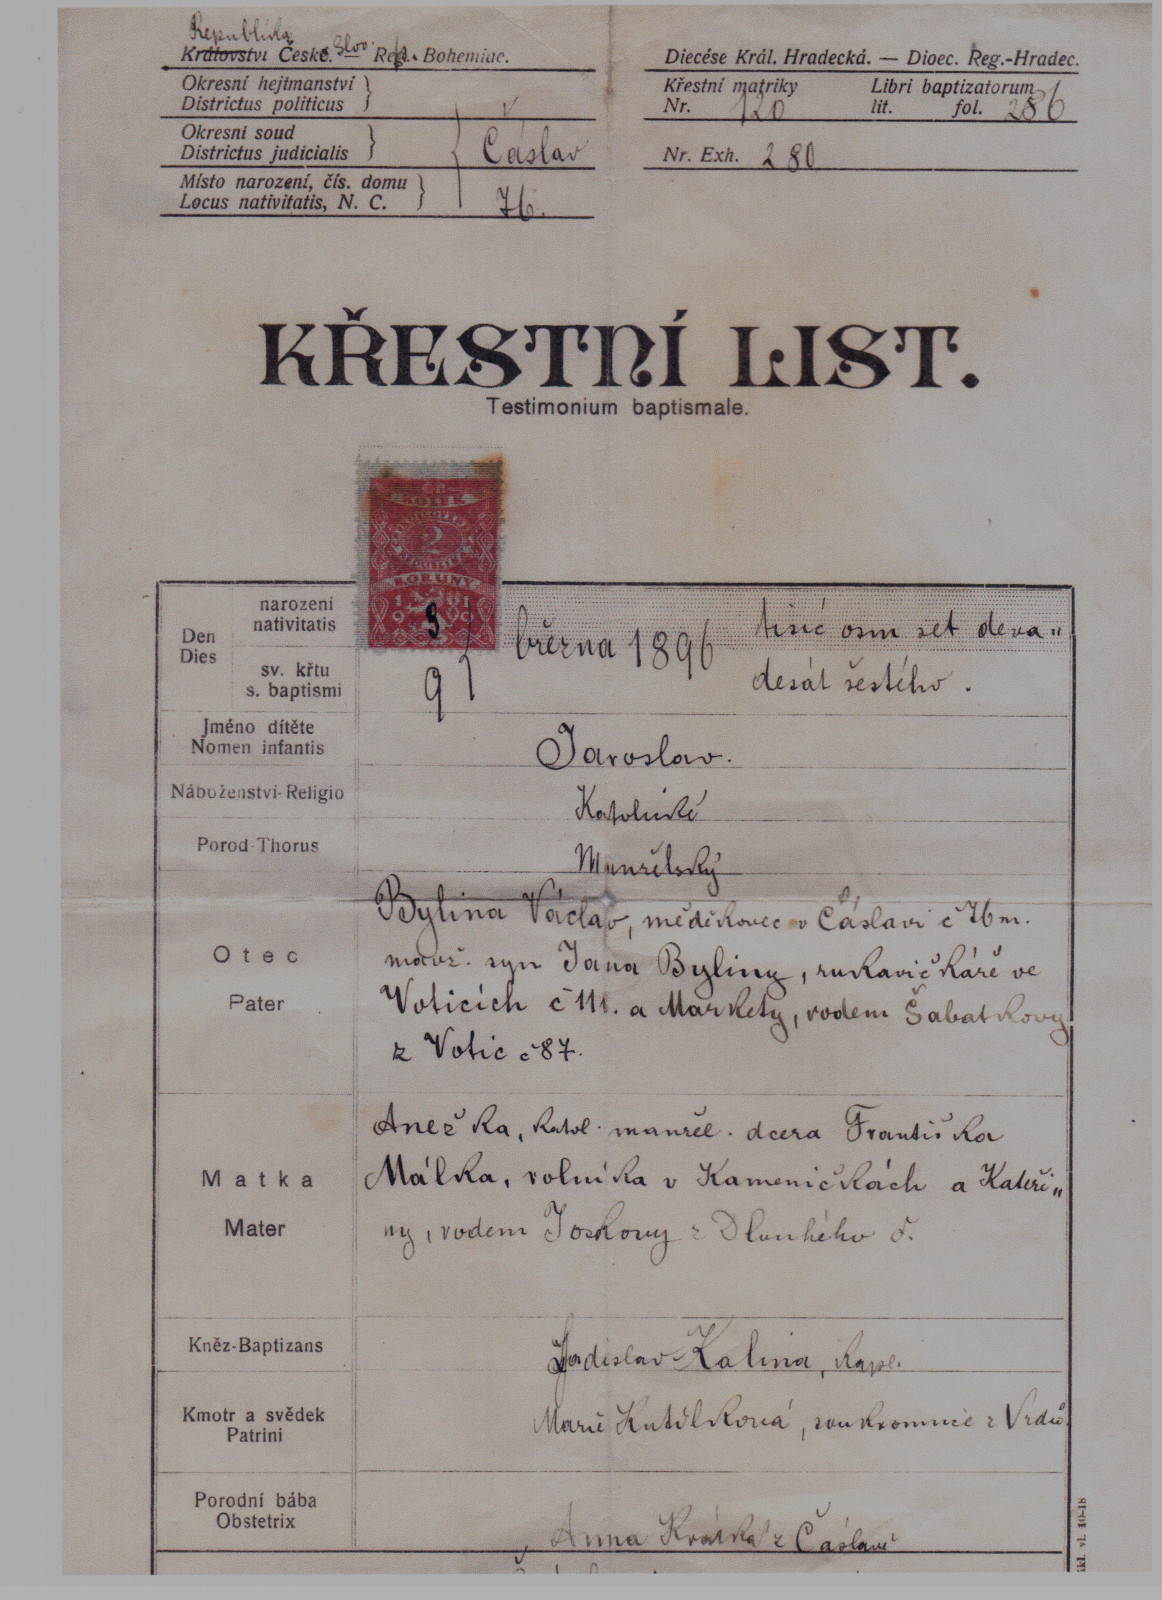 Republika
Království České. Slov. — Reg. Bohemiae.
Okresní hejtmanství }
Districtus politicus }
v
Okresní soud }
Districtus judicialis }
Čáslav
Místo narození, čís. domu }
Locus nativitatis, N. C. }
76.
Diecése Král. Hradecká. — Dioec. Reg.-Hradec.
Křestní matriky Libri baptizatorum
Nr. 120 lit. fol. 286
Nr. Exh. 280
KŘESTNÍ LIST.
Testimonium baptismale.
KOLEK
2
KORUNY
Den
Dies
narození
nativitatis
9
sv. křtu
s. baptismi
9
března 1896
tisíc osm set deva„
desát šestého.
Jméno dítěte
Nomen infantis
Jaroslav.
Náboženství-Religio
Katolické
Porod-Thorus
Manželský
Otec
Pater
Bylina Václav, mědikovec v Čáslavi č 76 m.
manž. syn Jana Byliny, rukavičkáře ve
Voticích č 111. a Markety, rodem Šabatkovy
z Votic č 87.
Matka
Mater
Anežka, katol. manžel. dcera Františka
Málka, rolníka v Kameničkách a Kateři„
ny, rodem Joskovy z Dlouhého č.
Kněz-Baptizans
Ladislav Kalina, kapl.
Kmotr a svědek
Patrini
Marie Kutílková, soukromnice z Vrdů.
Porodní bába
Obstetrix
Anna Krátká z Čáslavě
skl. vl. 10-18